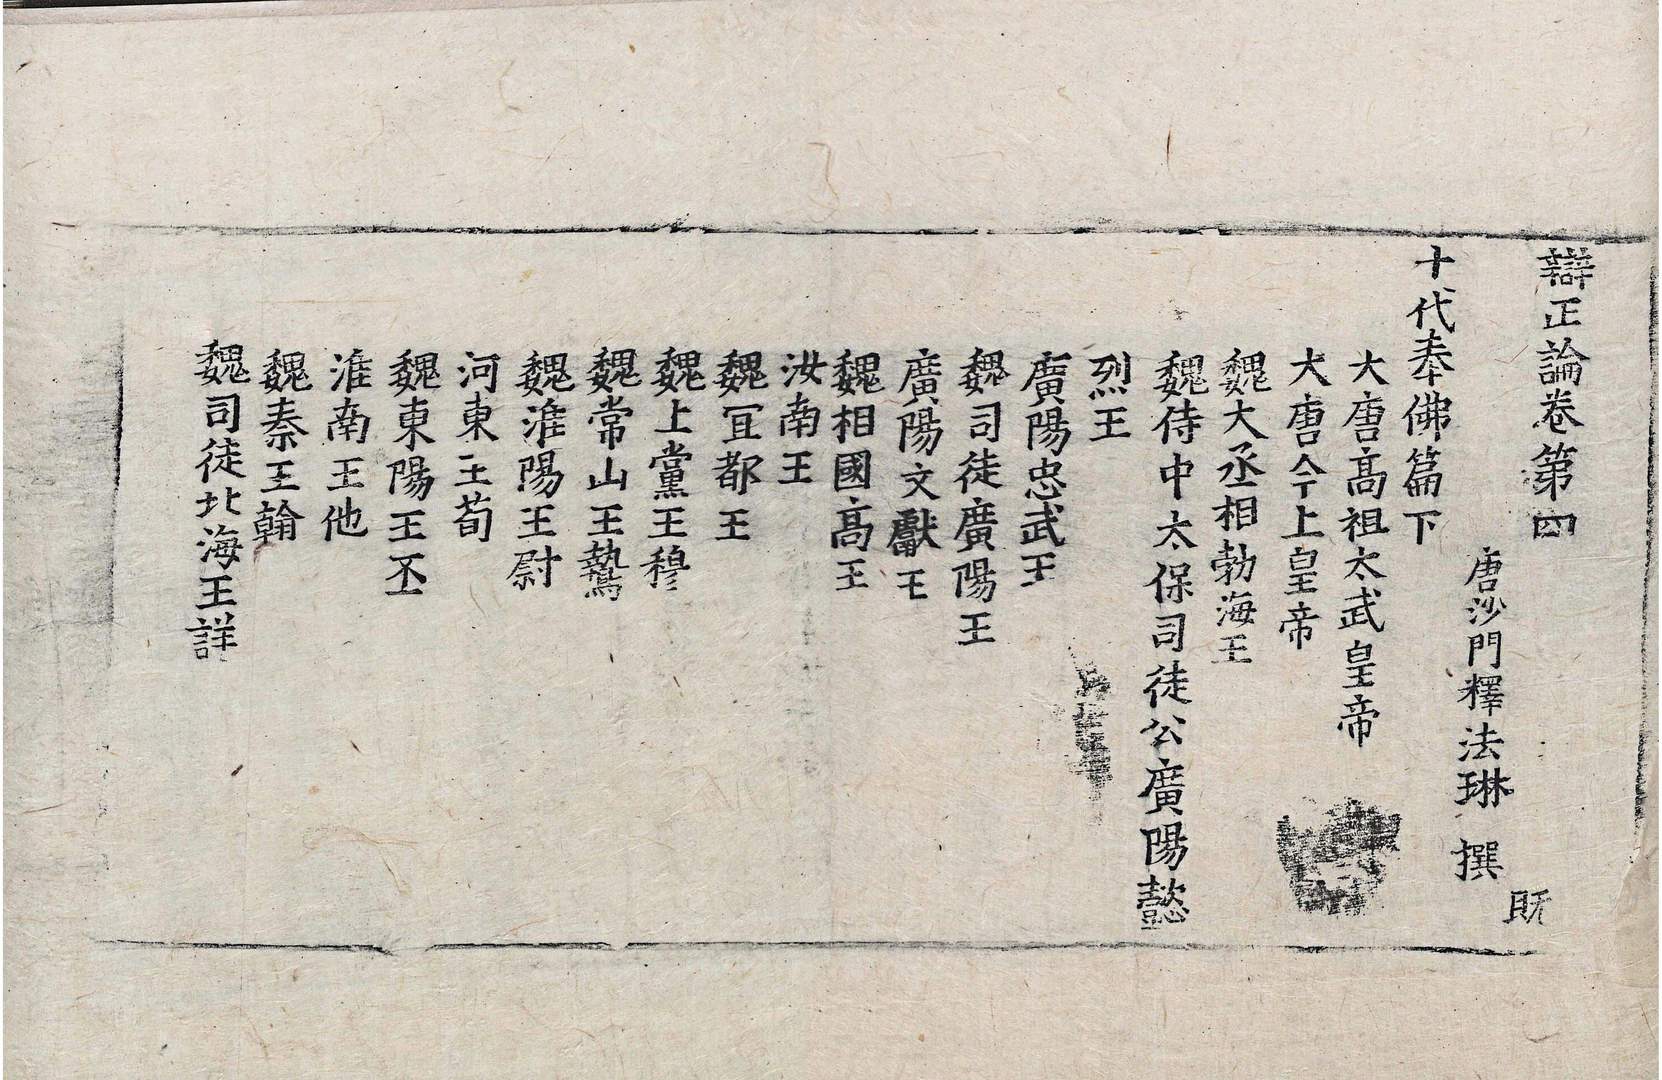 辯正論卷第四 旣
唐沙門釋法琳 撰
十代奉佛篇下
大唐高祖太武皇帝
大唐今上皇帝
魏大丞相勃海王
魏侍中太保司徒公廣陽懿
烈王
廣陽忠武王
魏司徒廣陽王
廣陽文獻王
魏相國高王
汝南王
魏冝都王
魏上黨王穆
魏常山王鷙
魏淮陽王尉
河東王荀
魏東陽王丕
淮南王他
魏秦王翰
魏司徒北海王詳